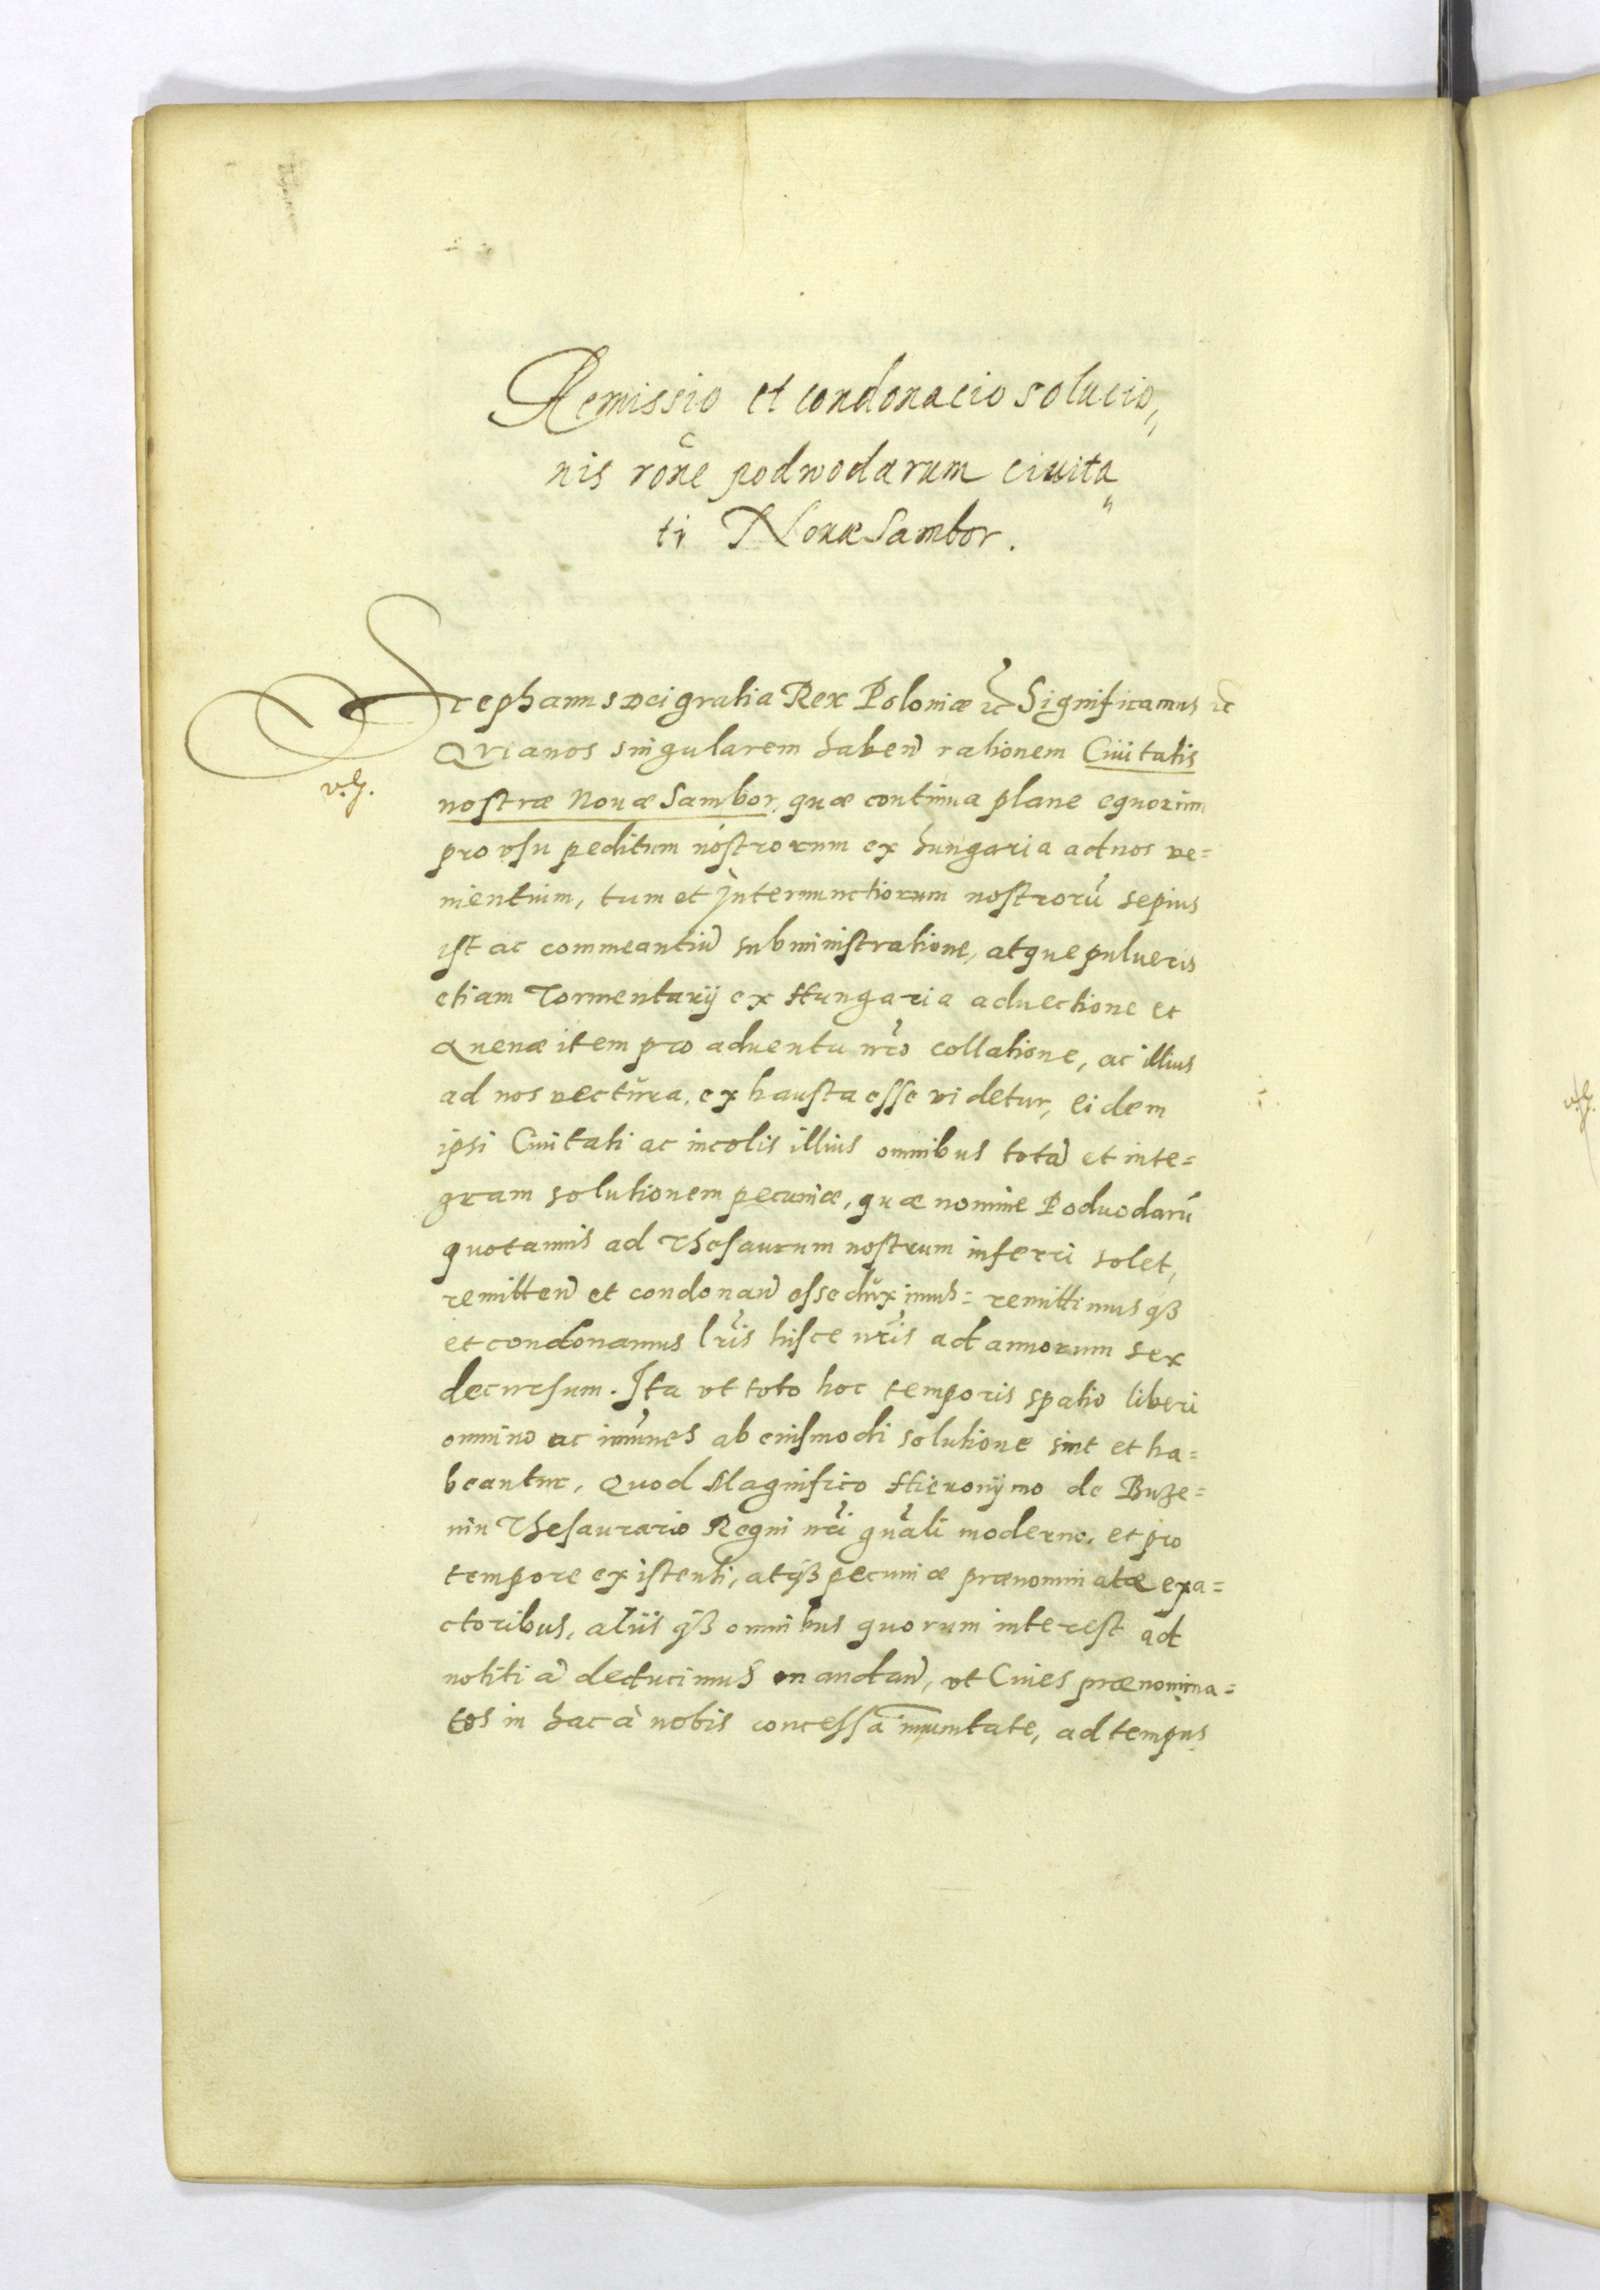 Remissio et condonacio solucio„
nis rõne podwodarum ciuita„
ti Nouae Sambor.
Stephanus Dei gratia Rex Poloniæ ꝛc Significamus ꝛc
Quia nos singularem haben̄ rationem Ciuitatis
nostræ Nouæ Sambor, quæ continua plane equorum
pro vsu peditum nostrorum ex hungaria ad nos ve=
nientium, tum et Internunctiorum nostrorũ sepius
ist ac commeantiũ subministratione, atque pulueris
etiam Tormentarij ex Hungaria aduectione et
Auenæ item pro aduentu nr̃o collatione, ac illius
ad nos vectura, exhausta esse videtur, eidem
ipsi Ciuitati ac incolis illius omnibus totã et inte=
gram solutionem pecuniæ, quæ nomine Poduodarũ
quotannis ad Thesaurum nostrum inferri solet,
remitten̄ et condonan̄ esse duximus= remittimusqꝫ
et condonamus lr̃is hisce nr̃is ad annorum sex
decursum. Ita vt toto hoc temporis spatio liberi
omnino ac im̃unes ab eiusmodi solutione sint et ha=
beantur, Quod Magnifico Hieronÿmo de Buze=
nin Thesaurario Regni nr̃i gnãli moderno, et pro
tempore existenti, atqꝫ pecuniæ prænominatæ exa=
ctoribus, aliisqꝫ omnibus quorum interest ad
notitiã deducimus mandan̄, vt Ciues prænomina=
tos in hac à nobis concessa im̃unitate, ad tempus